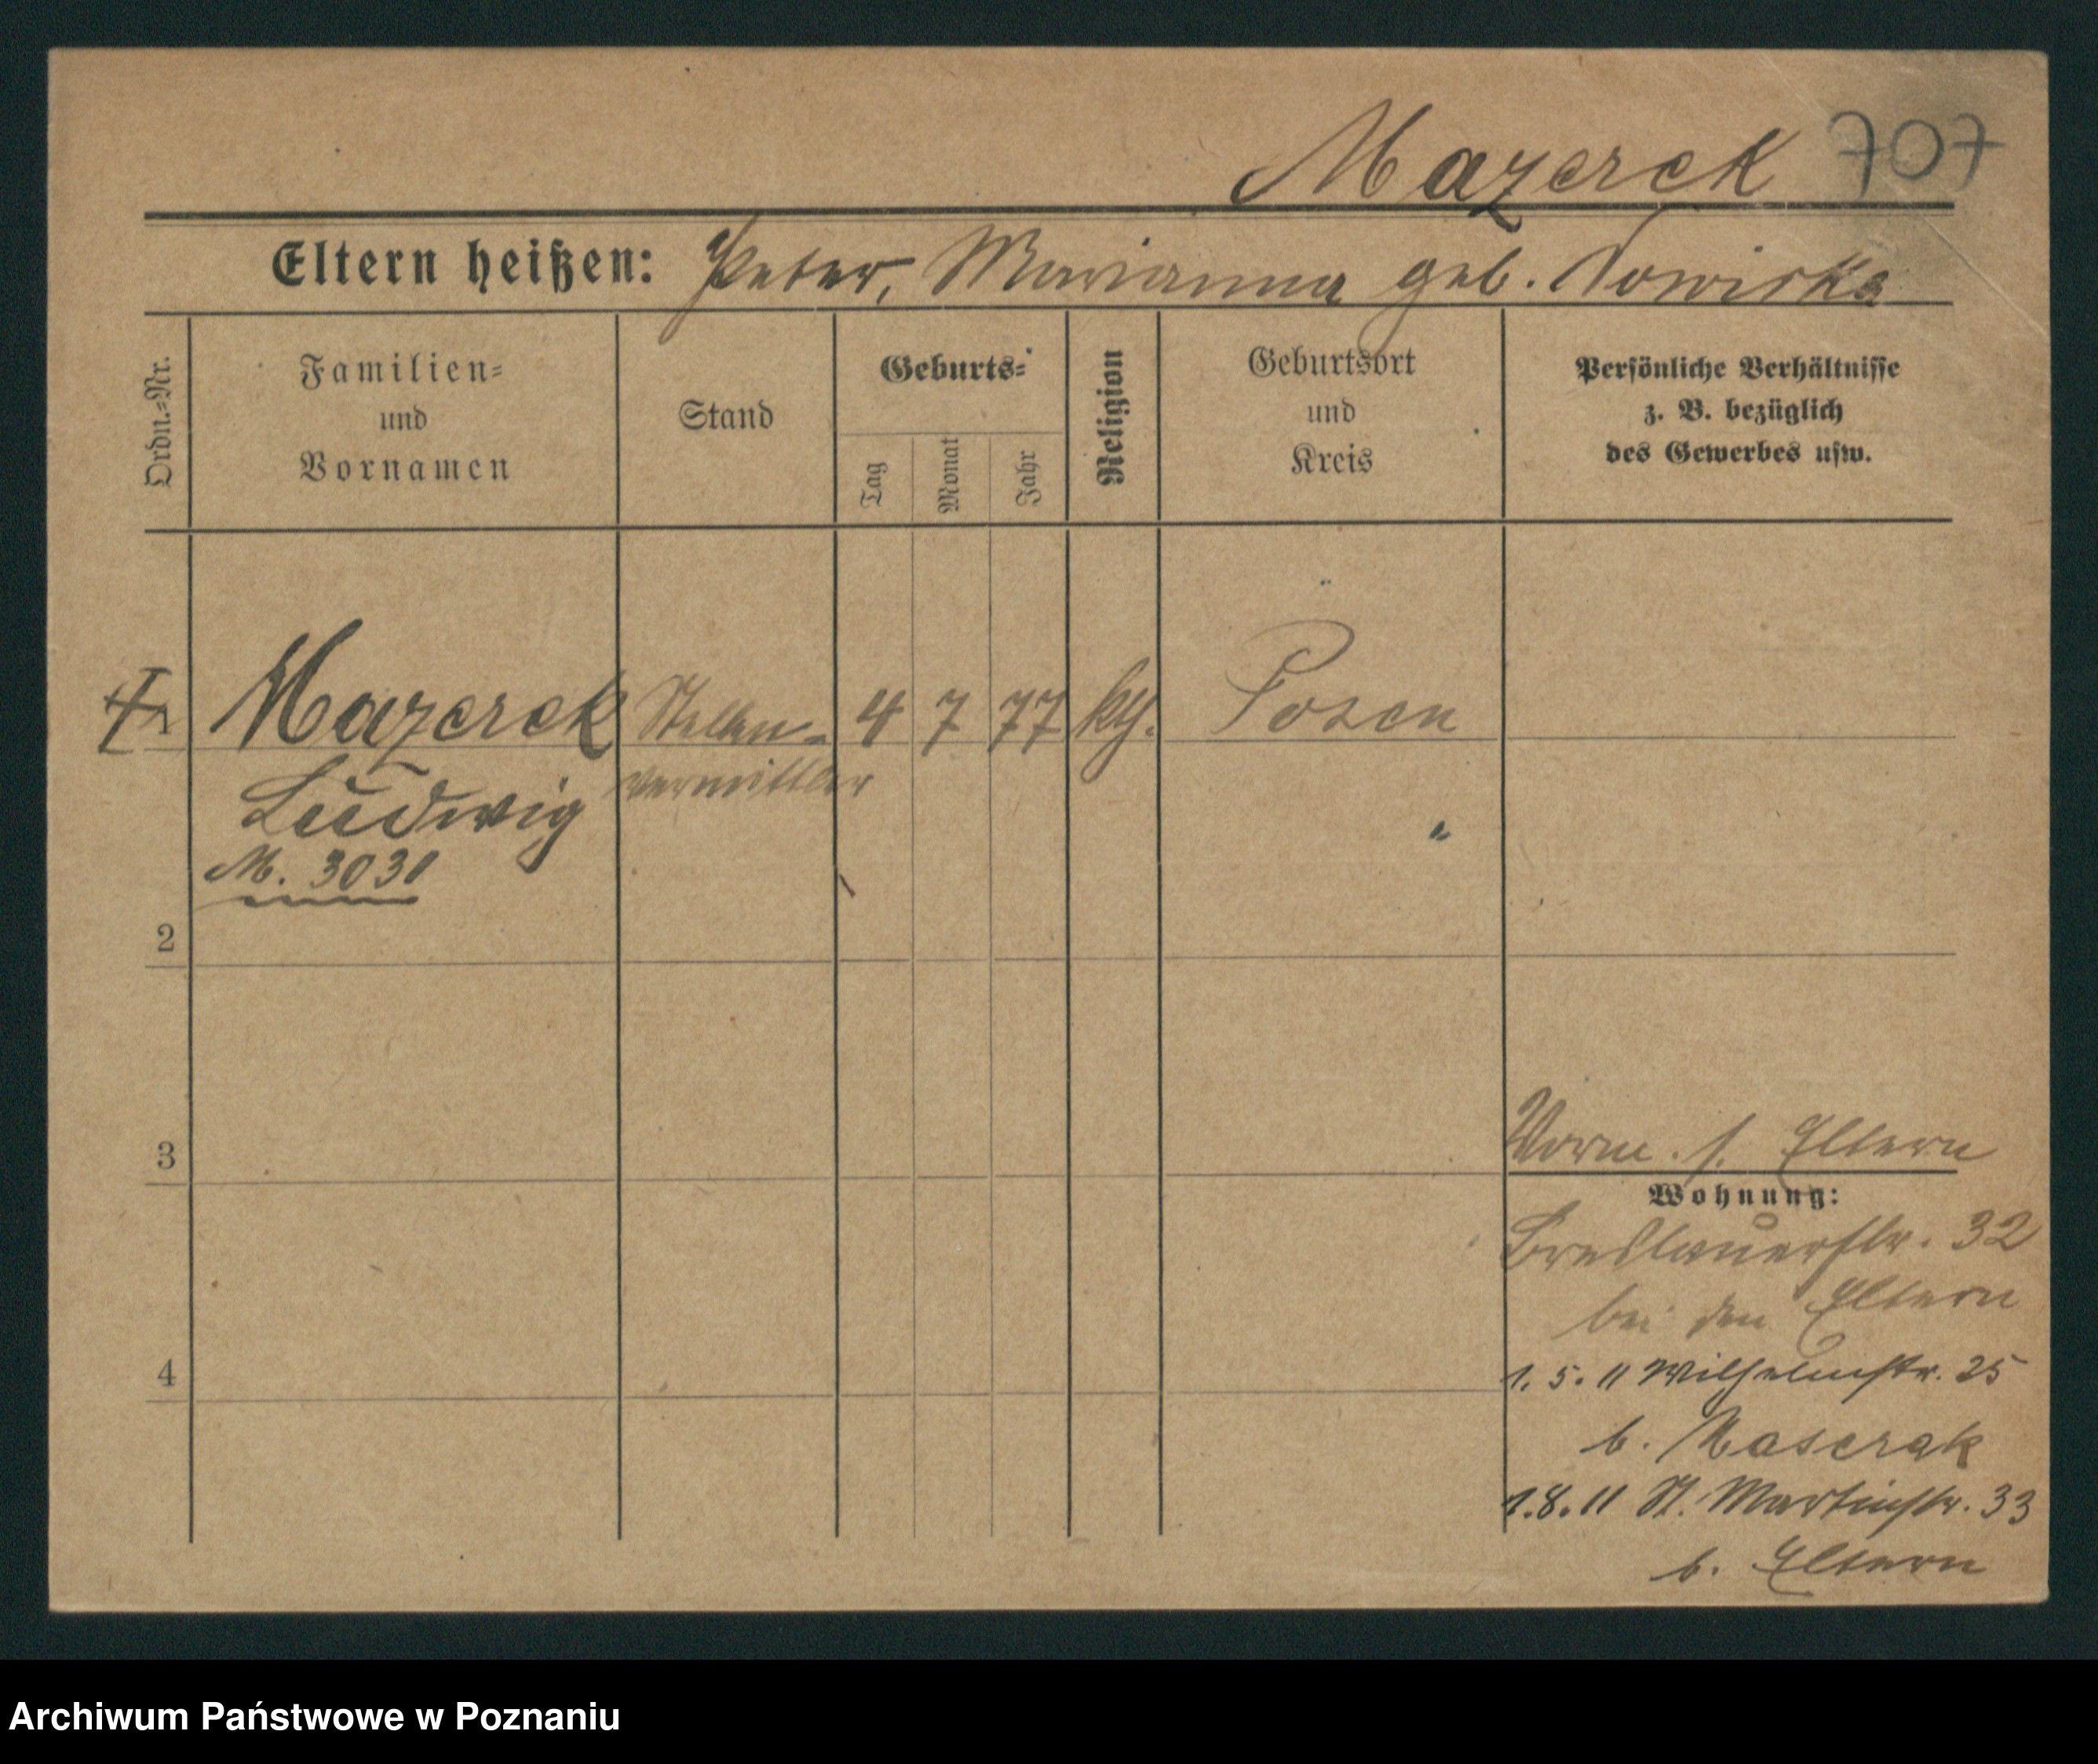 Mazerek 707
Eltern heißen: Peter, Marianna geb. Nowiska
Ordn.=Nr.
Familien=
und
Vornamen
Stand
Geburts=
Tag
Monat
Jahr
Religion
Geburtsort
und
Kreis
Persönliche Verhältnisse
z. B. bezüglich
des Gewerbes usw.
1 Mazerek Stellen- 4 7 77 kth. Posen
vermittler
Ludwig
M. 3031
2
3
Vorm. s. Eltern
Wohnung:
Breslauerstr. 32
bei den Eltern
4
1. 5. 11 Wilhelmstr. 25
b. Mascrak
1. 8. 11 St. Martinstr. 33
b. Eltern
Archiwum Państwowe w Poznaniu